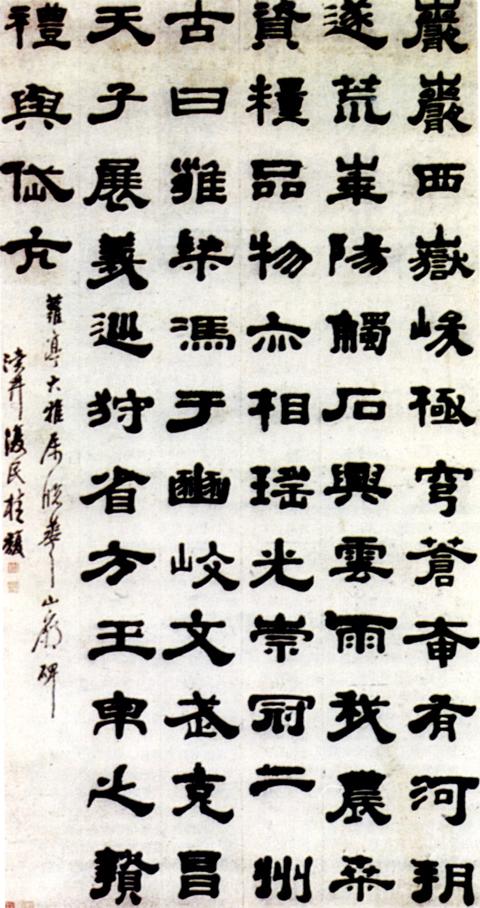 巖巖西嶽峻極穹蒼奄有河朔
遂荒華陽觸石興雲雨我農桑
資糧品物亦相瑤光崇冠二州
古曰雍梁馮于豳岐文武克昌
天子展義巡狩省方玉帛之贄
禮與岱亢
大雅屬臨華山廟碑
瀆井復民桂馥